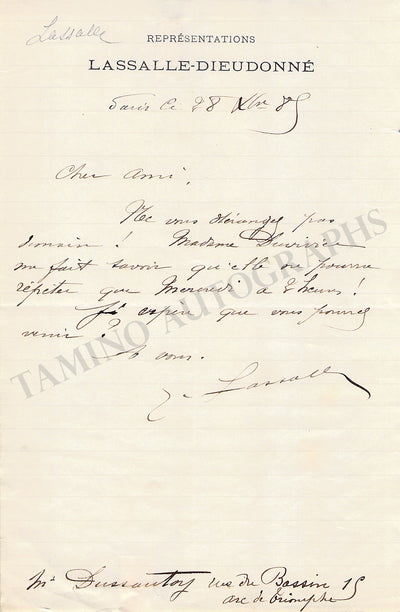 Lassalle
REPRÉSENTATIONS
LASSALLE-DIEUDONNÉ
Paris le 28 Xbre 85
Cher Ami,
Ne vous dérangez pas
demain ! Madame
me fait savoir qu'elle ne pourra
répéter que Mercredi à 2 heures !
J'espère que vous pourrez
venir ?
à vous.
Lassalle
Mr Dussautoy rue du Bassin 15
arc de triomphe
TAMINO AUTOGRAPHS